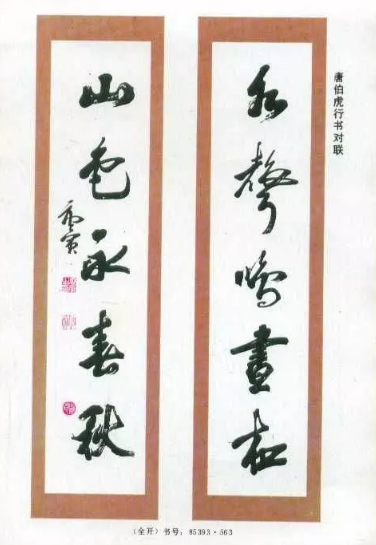 唐伯虎行书对联
水聲鳴晝夜
山色永春秋
唐寅
(全开) 书号:85393·563